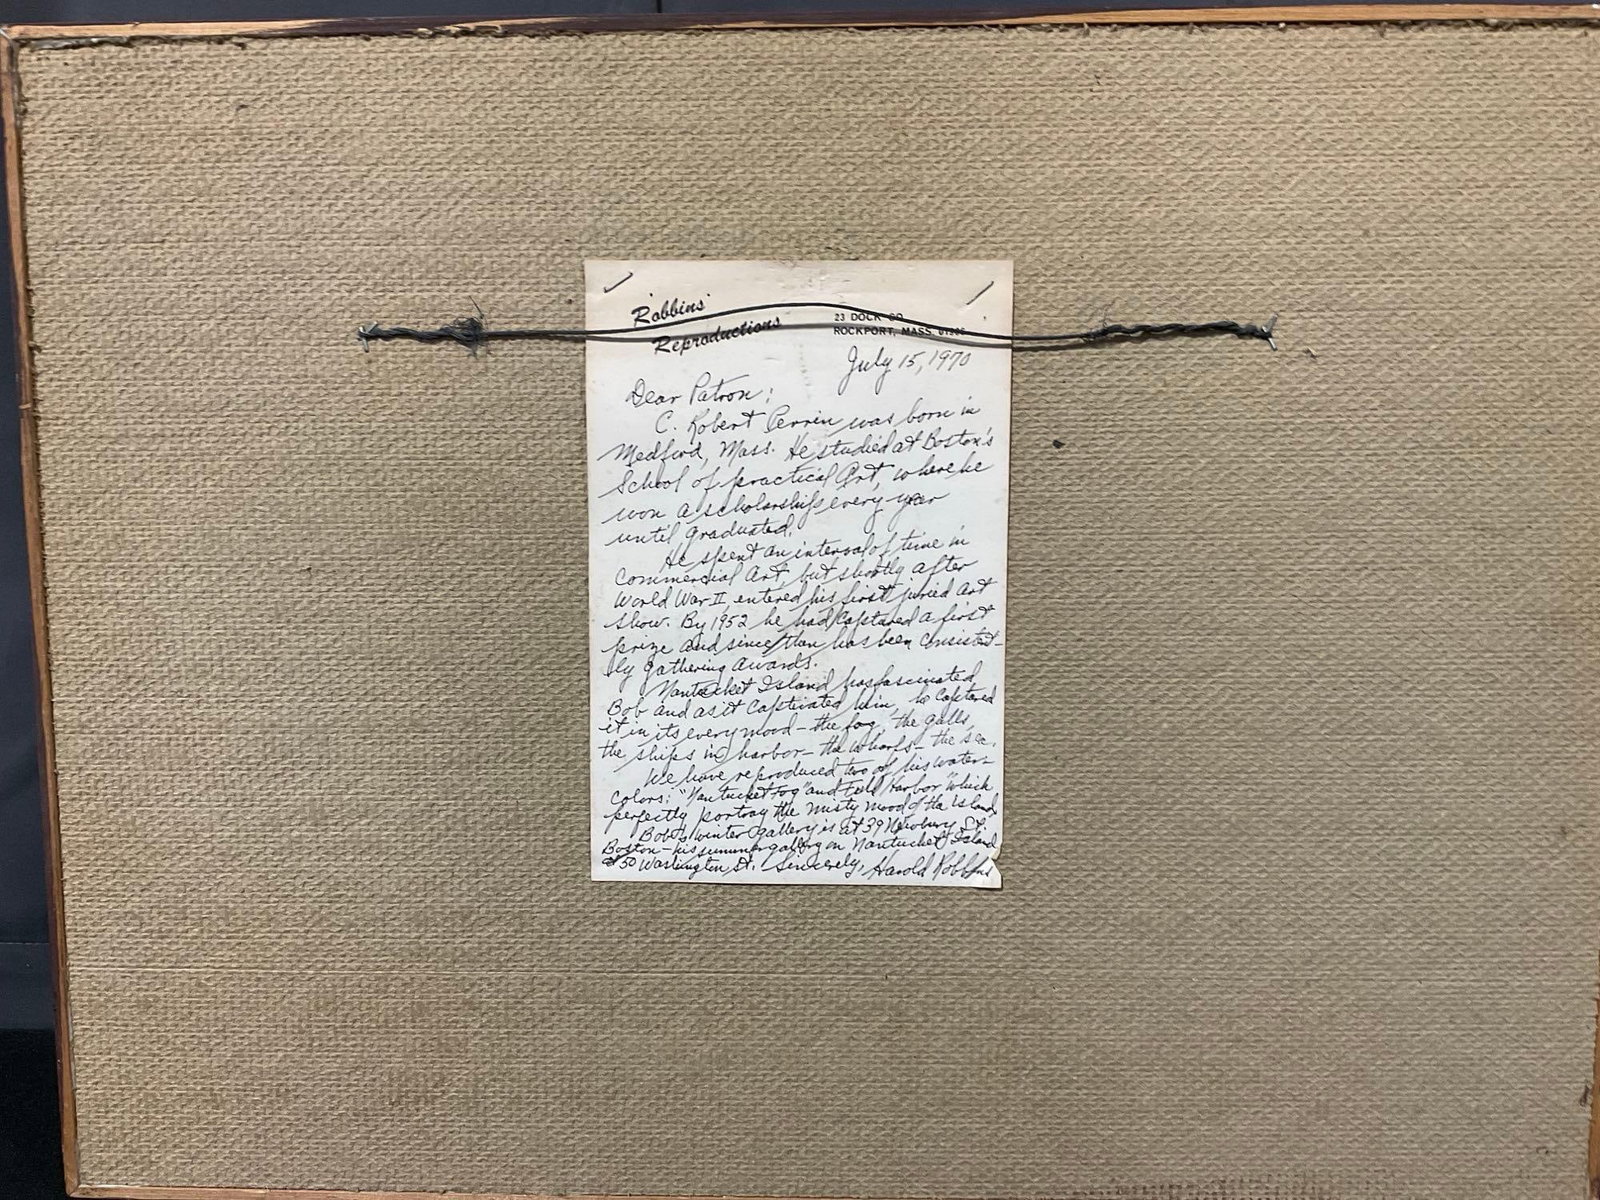 Robbins'
Reproductions
23 DOCK SQ.
ROCKPORT, MASS.
July 15, 1970
Dear Patron:
C. Robert Perrin was born in
Medford, Mass. He studied at Boston's
School of practical Art, where he
won a scholarship every year
until graduated.
He spent an interval of time in
Commercial Art, but shortly after
World War II, entered his first juried art
show. By 1952 he had captured a first
prize and since then has been consistent-
ly gathering awards.
Nantucket Island has fascinated
Bob and as it captivated him, he captured
it in its every mood - the fog, the gulls,
the ships in harbor - the wharfs - the sea.
We have reproduced two of his water-
colors: "Nantucket Fog" and Harbor" which
perfectly portray the misty mood of the Island
Bob's winter gallery is at 39 Newbury St.
Boston - his summer gallery on Nantucket Island
at 50 Washington St. Sincerely, Harold Robbins